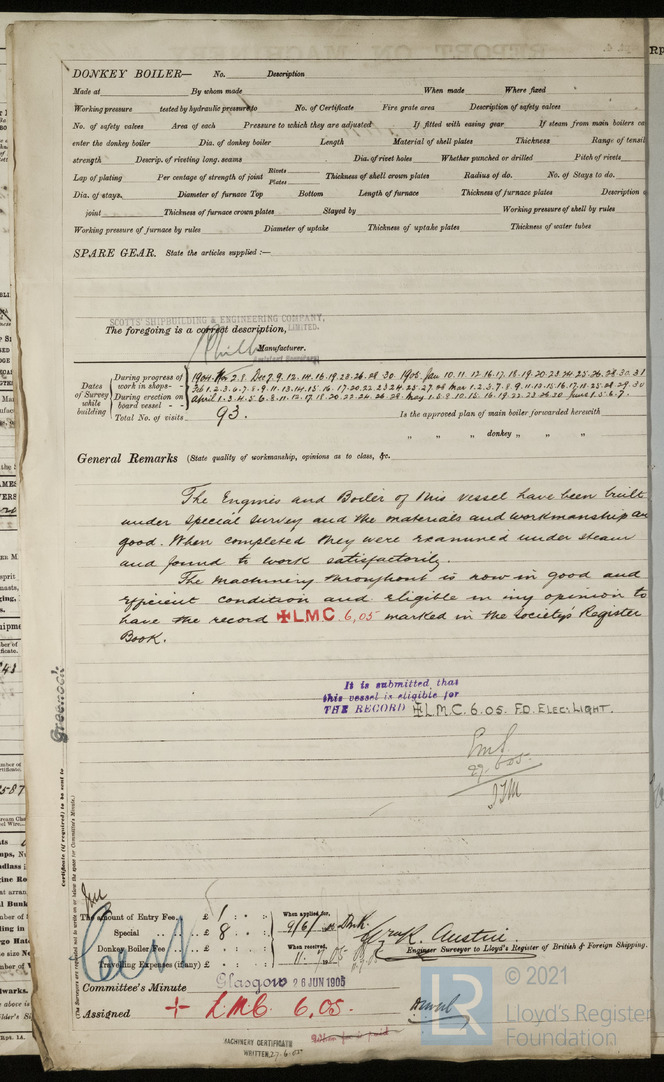 DONKEY BOILER— No. Description
Made at By whom made When made Where fixed
Working pressure tested by hydraulic pressure to No. of Certificate Fire grate area Description of safety valves
No. of safety valves Area of each Pressure to which they are adjusted If fitted with easing gear If steam from main boilers ca
enter the donkey boiler Dia. of donkey boiler Length Material of shell plates Thickness Range of tensil
strength Descrip. of riveting long. seams Dia. of rivet holes Whether punched or drilled Pitch of rivets
Lap of plating Per centage of strength of joint Rivets Plates Thickness of shell crown plates Radius of do. No. of Stays to do.
Dia. of stays. Diameter of furnace Top Bottom Length of furnace Thickness of furnace plates Description o
joint Thickness of furnace crown plates Stayed by Working pressure of shell by rules
Working pressure of furnace by rules Diameter of uptake Thickness of uptake plates Thickness of water tubes
SPARE GEAR. State the articles supplied :—
SCOTTS' SHIPBUILDING & ENGINEERING COMPANY,
LIMITED.
The foregoing is a correct description,
Manufacturer.
Assistant Secretary
Dates of Survey while building
During progress of work in shops - -
1904. Nov 2. 8. Dec 7. 9. 12. 14. 16. 19. 23. 26. 28. 30. 1905 Jan 10. 11. 12. 16. 17. 18. 19. 20. 23. 24. 25. 26. 28. 30. 31
Feb 1. 2. 3. 6. 7. 8. 9. 11. 13. 14. 15. 16. 17. 20. 22. 23. 24. 25. 27. 28 Mar 1. 2. 3. 7. 8. 9. 11. 13. 15. 16. 17. 18. 25. 28. 29. 30
During erection on board vessel - -
April 1. 3. 4. 5. 6. 8. 11. 12. 17. 18. 20. 22. 24. 26. 28. May 1. 5. 8. 10. 15. 16. 19. 22. 23. 26. 30 June 1. 5. 6. 7.
Total No. of visits 93.
Is the approved plan of main boiler forwarded herewith
" " " donkey " " "
General Remarks (State quality of workmanship, opinions as to class, &c.
The Engines and Boiler of this vessel have been built
under special survey and the materials and workmanship are
good. When completed they were examined under steam
and found to work satisfactorily.
The machinery throughout is now in good and
efficient condition and eligible in my opinion to
have the record ✠LMC. 6,05 marked in the Society's Register
Book.
It is submitted that
this vessel is eligible for
THE RECORD ✠L.M.C. 6.05. F.D. Elec: Light.
Greenock
Certificate (if required) to be sent to
(The Surveyors are requested not to write on or below the space for Committee's Minute.)
The amount of Entry Fee. . £ 1 : :
Special . . £ 8 : :
Donkey Boiler Fee . . £ : :
Travelling Expenses (if any) £ : :
When applied for,
9/6/
When received,
Austin
Engineer Surveyor to Lloyd's Register of British & Foreign Shipping.
Committee's Minute Glasgow 26 JUN 1905
Assigned + L.M.C. 6,05.
MACHINERY CERTIFICATE
WRITTEN 27.6.05
© 2021
Lloyd's Register
Foundation